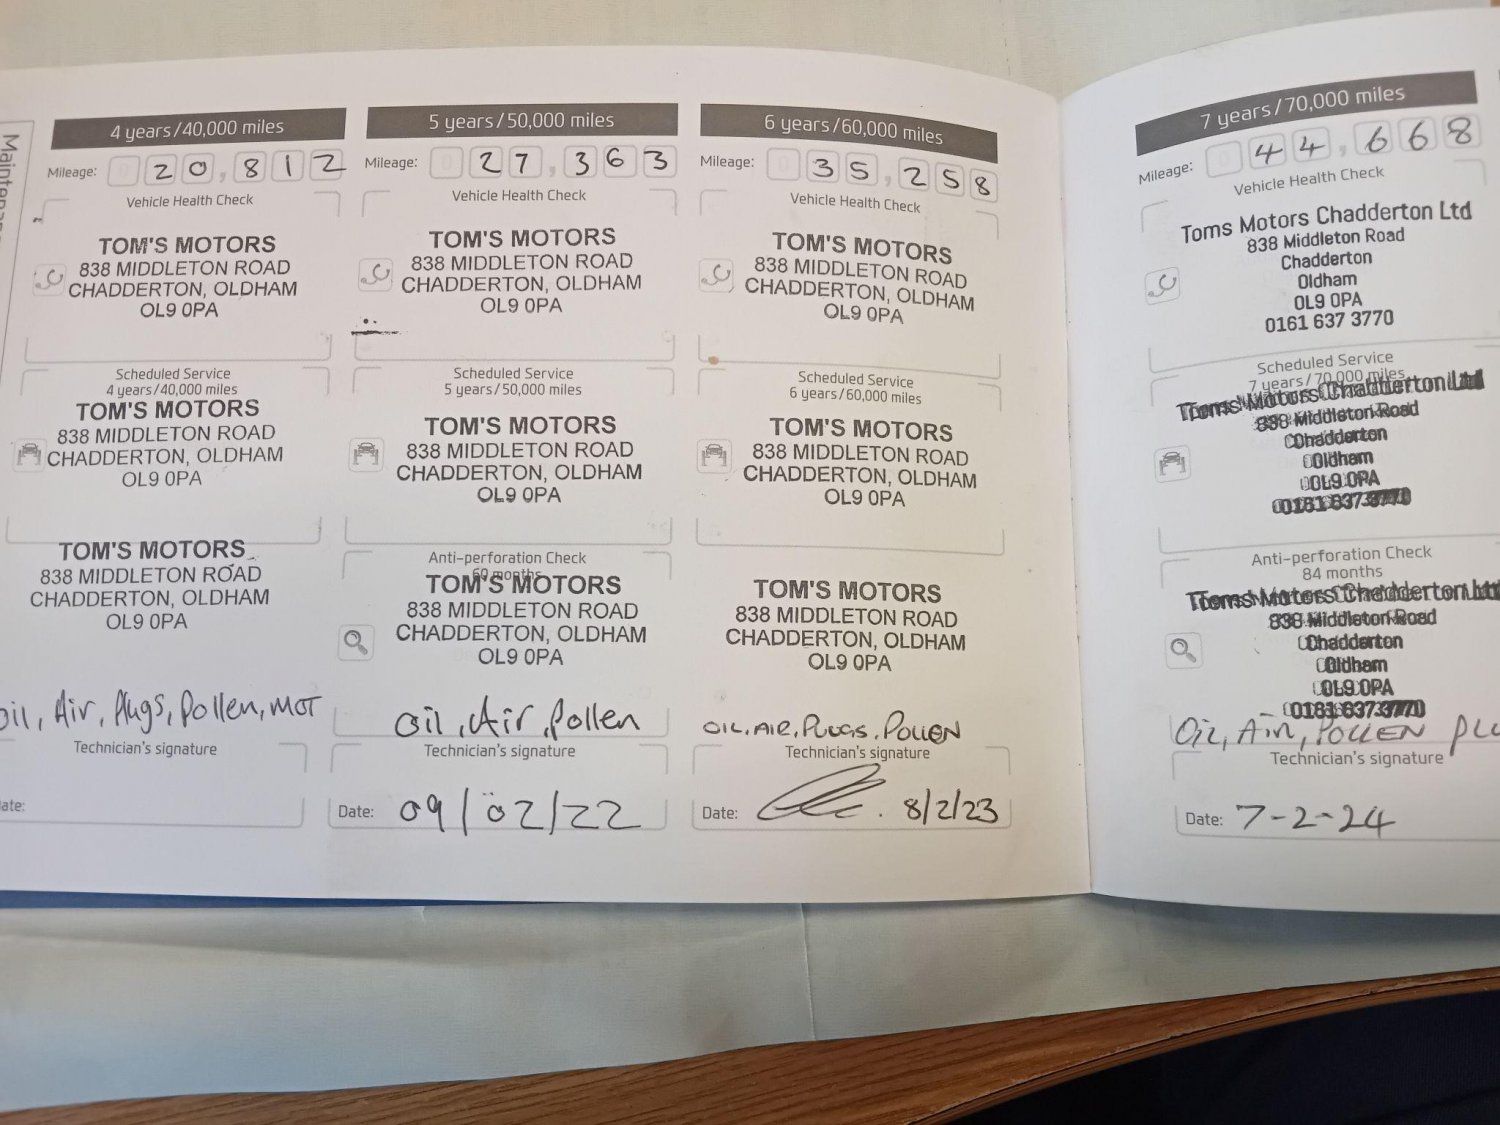 Maintenan
4 years/40,000 miles
Mileage: 20,812
Vehicle Health Check
TOM'S MOTORS
838 MIDDLETON ROAD
CHADDERTON, OLDHAM
OL9 0PA
Scheduled Service
4 years/40,000 miles
TOM'S MOTORS
838 MIDDLETON ROAD
CHADDERTON, OLDHAM
OL9 0PA
TOM'S MOTORS
838 MIDDLETON ROAD
CHADDERTON, OLDHAM
OL9 0PA
oil, Air, Plugs, Pollen, MOT
Technician's signature
ate:
5 years/50,000 miles
Mileage: 27,363
Vehicle Health Check
TOM'S MOTORS
838 MIDDLETON ROAD
CHADDERTON, OLDHAM
OL9 0PA
Scheduled Service
5 years/50,000 miles
TOM'S MOTORS
838 MIDDLETON ROAD
CHADDERTON, OLDHAM
OL9 0PA
Anti-perforation Check
60 months
TOM'S MOTORS
838 MIDDLETON ROAD
CHADDERTON, OLDHAM
OL9 0PA
oil, Air, Pollen
Technician's signature
Date: 09/02/22
6 years/60,000 miles
Mileage: 35,258
Vehicle Health Check
TOM'S MOTORS
838 MIDDLETON ROAD
CHADDERTON, OLDHAM
OL9 0PA
Scheduled Service
6 years/60,000 miles
TOM'S MOTORS
838 MIDDLETON ROAD
CHADDERTON, OLDHAM
OL9 0PA
TOM'S MOTORS
838 MIDDLETON ROAD
CHADDERTON, OLDHAM
OL9 0PA
OIL, AIR, PLUGS, POLLEN
Technician's signature
Date: 8/2/23
7 years/70,000 miles
Mileage: 44,668
Vehicle Health Check
Toms Motors Chadderton Ltd
838 Middleton Road
Chadderton
Oldham
OL9 0PA
0161 637 3770
Scheduled Service
7 years/70,000 miles
Toms Motors Chadderton Ltd
838 Middleton Road
Chadderton
Oldham
OL9 0PA
0161 637 3770
Anti-perforation Check
84 months
Toms Motors Chadderton Ltd
838 Middleton Road
Chadderton
Oldham
OL9 0PA
0161 637 3770
Oil, Air, POLLEN PLU
Technician's signature
Date: 7-2-24